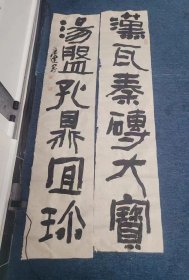 漢瓦秦磚大寶
湯盤孔鼎珎